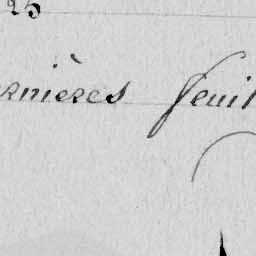 25
rnières feuil